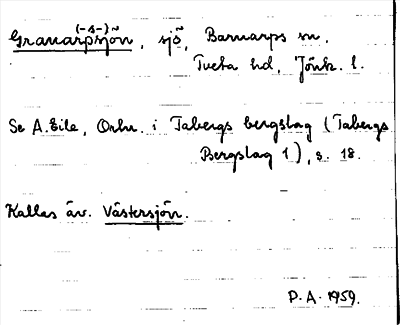 (-s-)~
Granarpsjön, sjö, Barnarps sn.
Tveta hd, Jönk. l.
Se A. Eile, Ortn. i Tabergs bergslag (Tabergs
Bergslag 1), s. 18.
Kallas äv. Västersjön.
P.A. 1959.